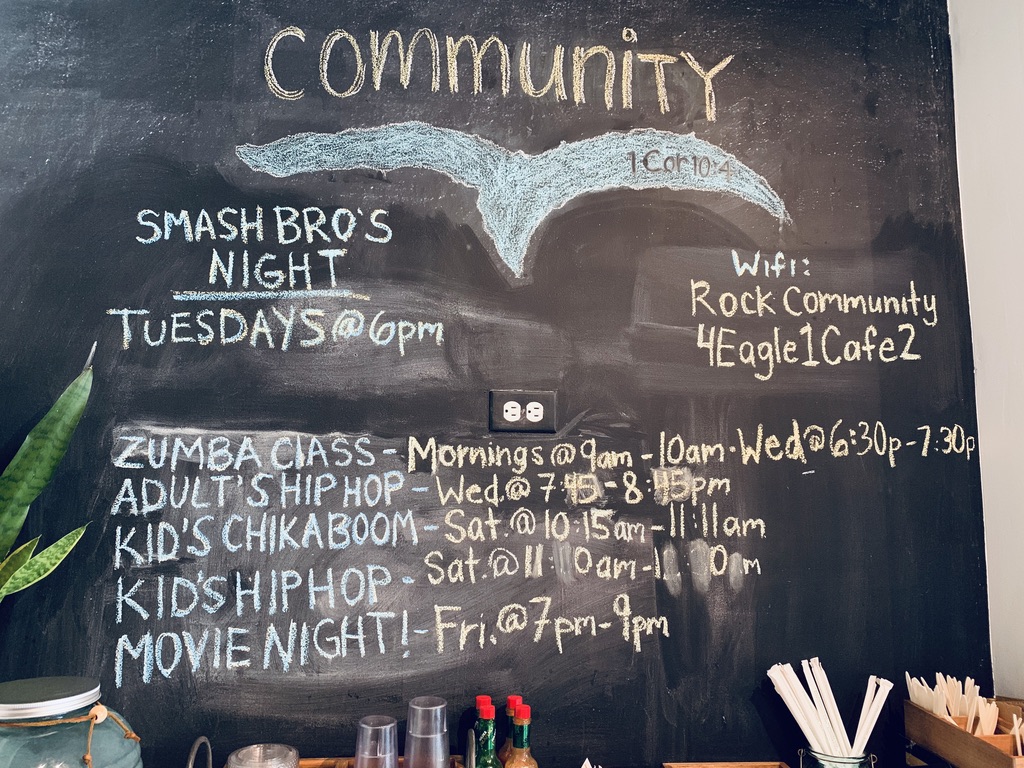 COMMUNITY
1 Cor 10:4
SMASH BRO'S
NIGHT
TUESDAYS @ 6pm
Wifi:
Rock Community
4Eagle1Cafe2
ZUMBA CLASS - Mornings @ 9am - 10am · Wed @ 6:30p - 7:30p
ADULT'S HIP HOP - Wed. @ 7:45 - 8:45pm
KID'S CHIKABOOM - Sat. @ 10:15am - 11:11am
KID'S HIP HOP - Sat. @
MOVIE NIGHT! - Fri. @ 7pm - 9pm